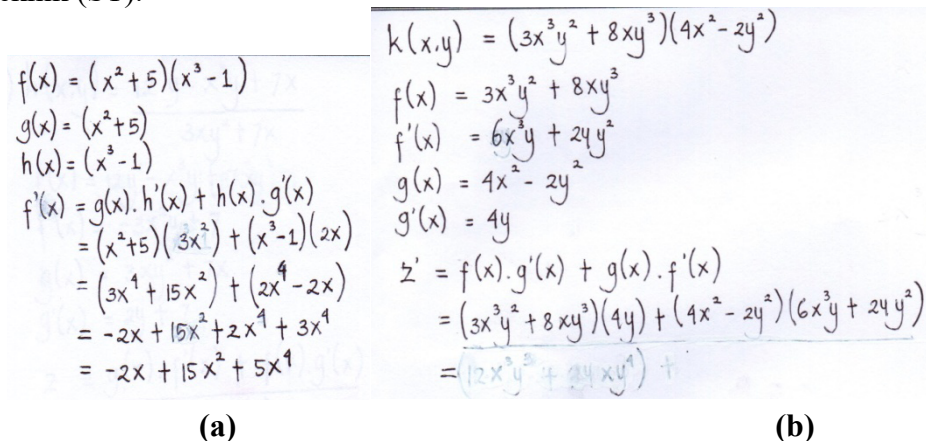 f(x) = (x² + 5)(x³ - 1)
g(x) = (x² + 5)
h(x) = (x³ - 1)
f'(x) = g(x) . h'(x) + h(x) . g'(x)
= (x² + 5)(3x²) + (x³ - 1)(2x)
= (3x⁴ + 15x²) + (2x⁴ - 2x)
= -2x + 15x² + 2x⁴ + 3x⁴
= -2x + 15x² + 5x⁴
(a)
k(x,y) = (3x³y² + 8xy³)(4x² - 2y²)
f(x) = 3x³y² + 8xy³
f'(x) = 6x³y + 24y²
g(x) = 4x² - 2y²
g'(x) = 4y
z' = f(x) . g'(x) + g(x) . f'(x)
= (3x³y² + 8xy³)(4y) + (4x² - 2y²)(6x³y + 24y²)
= (12x³y³ +
(b)